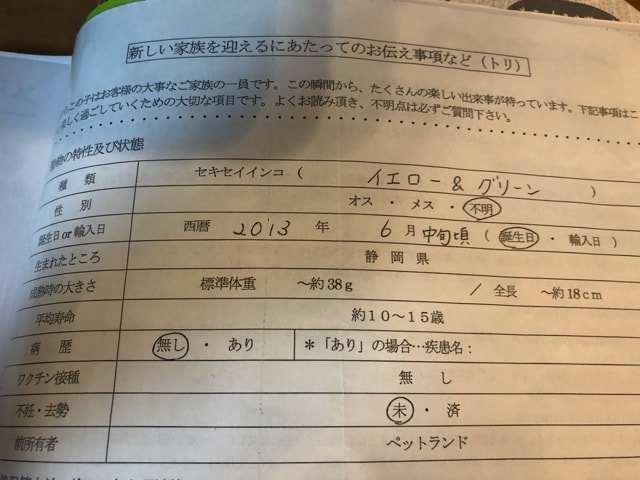 新しい家族を迎えるにあたってのお伝え事項など（トリ）
この子はお客様の大事なご家族の一員です。この瞬間から、たくさんの楽しい出来事が待っています。下記事項はこ
楽しく過ごしていくための大切な項目です。よくお読み頂き、不明点は必ずご質問下さい。
動物の特性及び状態
種類 セキセイインコ（ イエロー & グリーン ）
性別 オス ・ メス ・ 不明
誕生日 or 輸入日 西暦 2013 年 6 月 中旬頃 （ 誕生日 ・ 輸入日 ）
生まれたところ 静岡県
成熟時の大きさ 標準体重 ～約38g / 全長 ～約18cm
平均寿命 約10～15歳
病歴 無し ・ あり ＊「あり」の場合…疾患名：
ワクチン接種 無し
不妊・去勢 未 ・ 済
前所有者 ペットランド